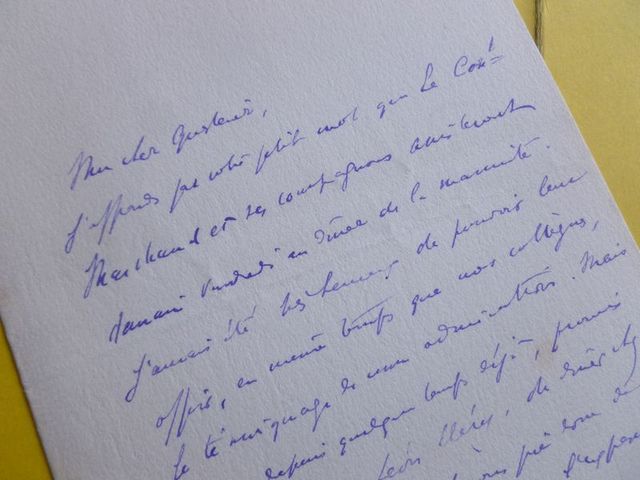 Mon cher Gustave,
J'apprends par votre petit mot que le Comt
Marchand et ses compagnons assisteront
demain vendredi au dîner de la marmite.
J'aurais été très heureux de pouvoir leur
offrir, en même temps que nos collègues,
le témoignage de mon admiration. Mais
depuis quelque temps déjà, je
de